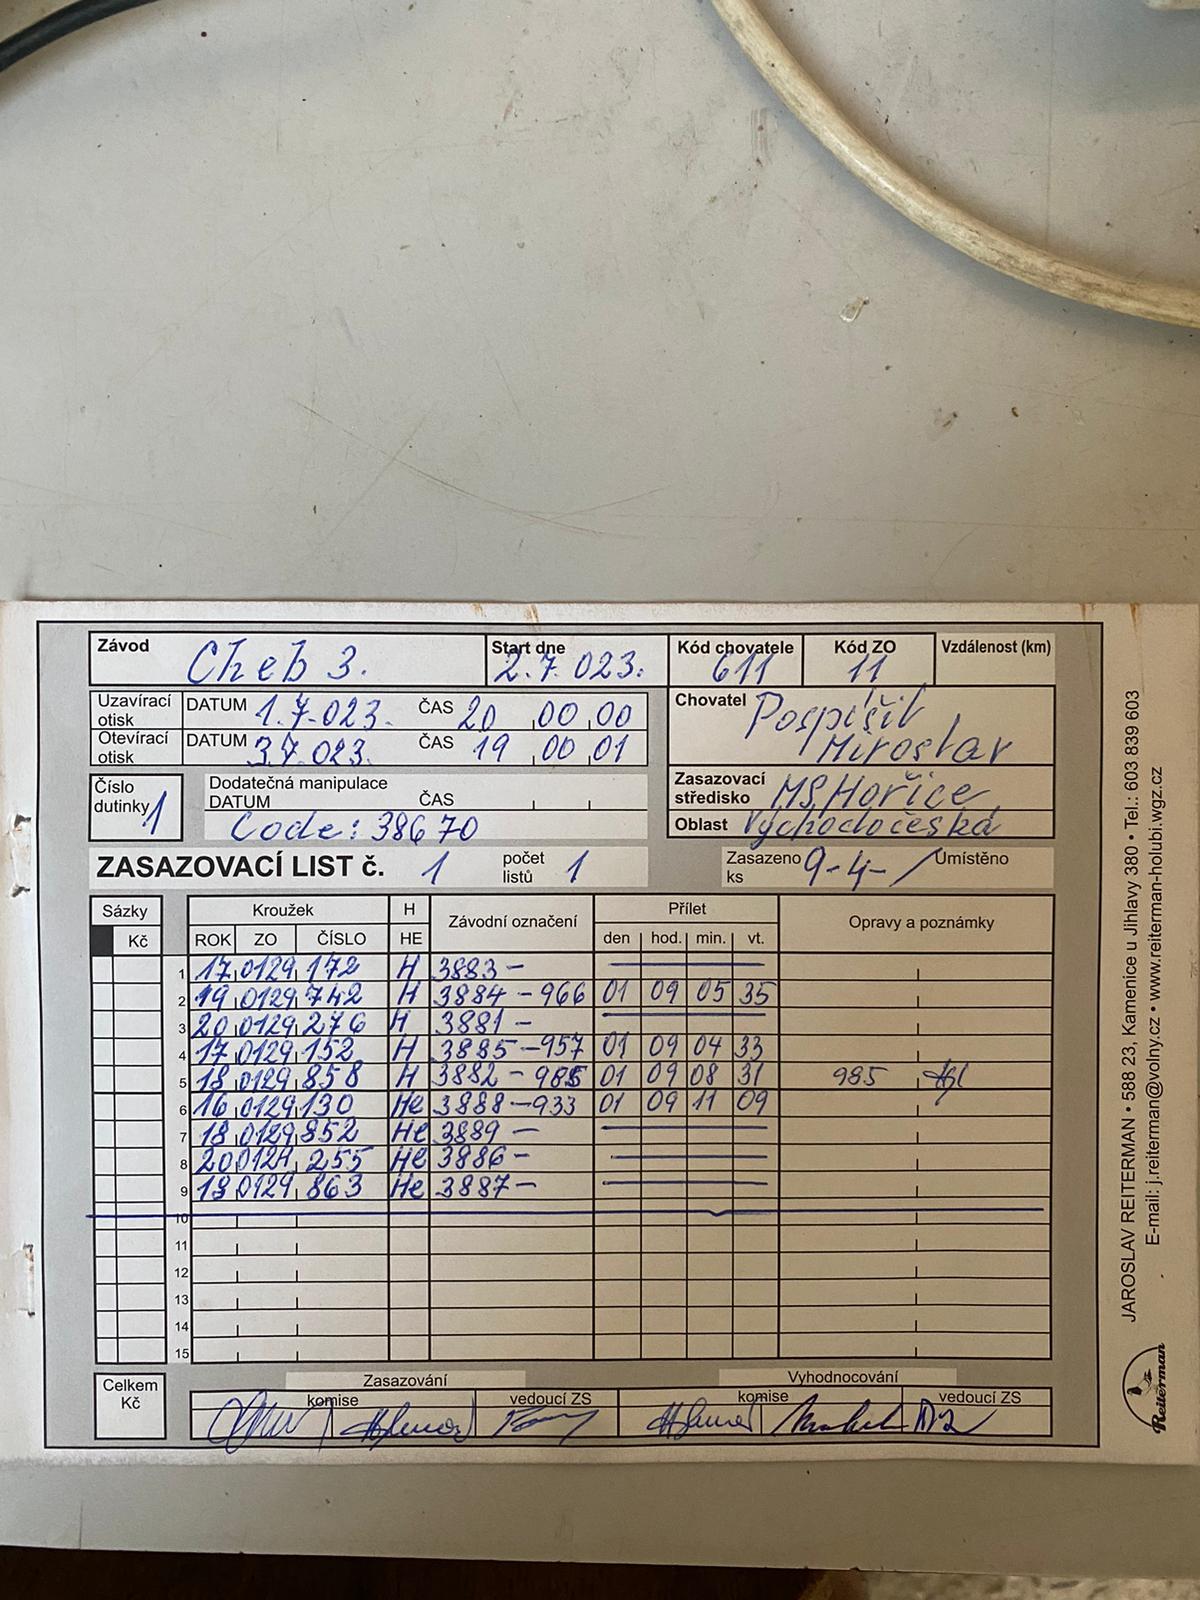 Závod Cheb 3. Start dne 2.7.023. Kód chovatele 611 Kód ZO 11 Vzdálenost (km)
Uzavírací otisk DATUM 1.7.023. ČAS 20 00 00
Otevírací otisk DATUM 3.7.023. ČAS 19 00 01
Chovatel Pospíšil
Miroslav
Číslo dutinky 1
Dodatečná manipulace
DATUM ČAS
Code: 38670
Zasazovací středisko MS Hořice
Oblast Východočeská
ZASAZOVACÍ LIST č. 1 počet listů 1 Zasazeno ks 9-4- Umístěno
Sázky Kroužek H Závodní označení Přílet Opravy a poznámky
Kč ROK ZO ČÍSLO HE den hod. min. vt.
1 17 0129 172 H 3883 -
2 19 0129 742 H 3884 - 966 01 09 05 35
3 20 0129 276 H 3881 -
4 17 0129 152 H 3885 - 957 01 09 04 33
5 18 0129 858 H 3882 - 985 01 09 08 31 985
6 16 0129 130 He 3888 - 933 01 09 11 09
7 18 0129 852 He 3889 -
8 20 0129 255 He 3886 -
9 18 0129 863 He 3887 -
10
11
12
13
14
15
Celkem Kč
Zasazování Vyhodnocování
komise vedoucí ZS komise vedoucí ZS
JAROSLAV REITERMAN • 588 23, Kamenice u Jihlavy 380 • Tel.: 603 839 603
E-mail: j.reiterman@volny.cz • www.reiterman-holubi.wgz.cz
Reiterman